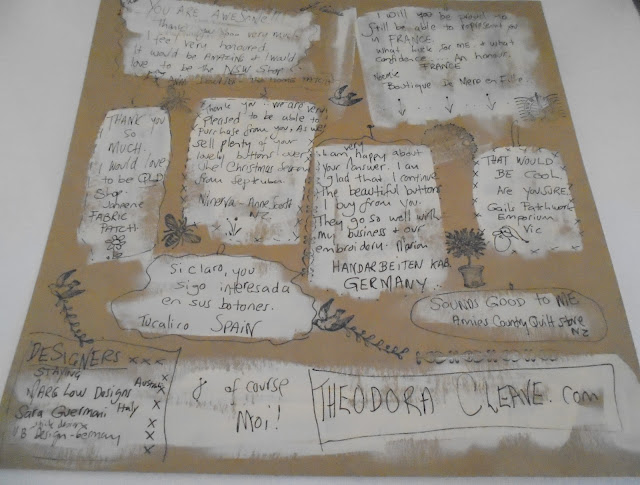 YOU ARE AWESOME!!
Thank you very much
I feel very honoured.
It would be AMAZING & I would
love to be the NSW Shop.
I will you be proud to
still be able to represent you
in FRANCE
what luck for me & what
confidence. An honour.
FRANCE
Boutique De Mere en Fille.
THANK YOU
SO
MUCH.
I would love
to be QLD
Shop.
FABRIC
PATCH
Thank you - we are very
pleased to be able to
purchase from you. As we
sell plenty of your
lovely buttons over
the Christmas season
from
Minerva - Anne
NZ
very
I am happy about
your answer. I am
glad that I continue
the beautiful buttons
I buy from you.
They go so well with
my business & our
embroidery. Marion
HANDARBEITEN KAB
GERMANY
THAT WOULD
BE COOL
Are you SURE,
Gails Patchwork
Emporium
Vic
Si claro, you
sigo interesada
en sus botones.
Tucaliro SPAIN
SOUNDS GOOD TO ME
Annies Country Quilt Store
NZ
DESIGNERS xxx
STAYING
MARG LOW Designs Australia
Sara Guermani Italy
Design - Germany
& of course
Moi!
THEODORA CLEAVE.com